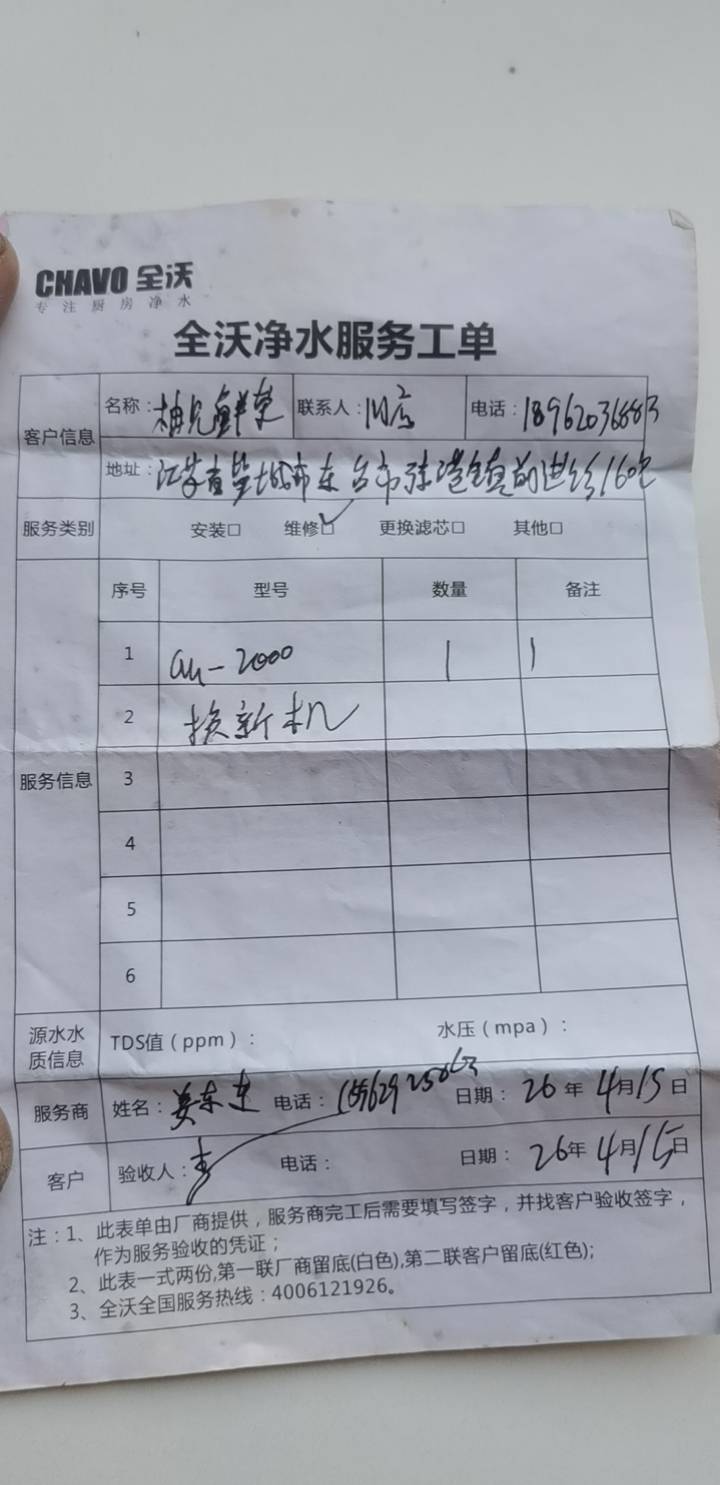 CHAVO 全沃
专注厨房净水
全沃净水服务工单
客户信息 名称： 联系人： 电话：18962036883
地址：江苏省盐城市东台市 镇前进路160号
服务类别 安装□ 维修□✓ 更换滤芯□ 其他□
服务信息 序号 型号 数量 备注
1 -2000 1 1
2 换新机
3
4
5
6
源水水质信息 TDS值（ppm）： 水压（mpa）：
服务商 姓名：姜东 电话： 日期：26年4月15日
客户 验收人： 电话： 日期：26年4月15日
注：1、此表单由厂商提供，服务商完工后需要填写签字，并找客户验收签字，
作为服务验收的凭证；
2、此表一式两份,第一联厂商留底(白色),第二联客户留底(红色);
3、全沃全国服务热线：4006121926。